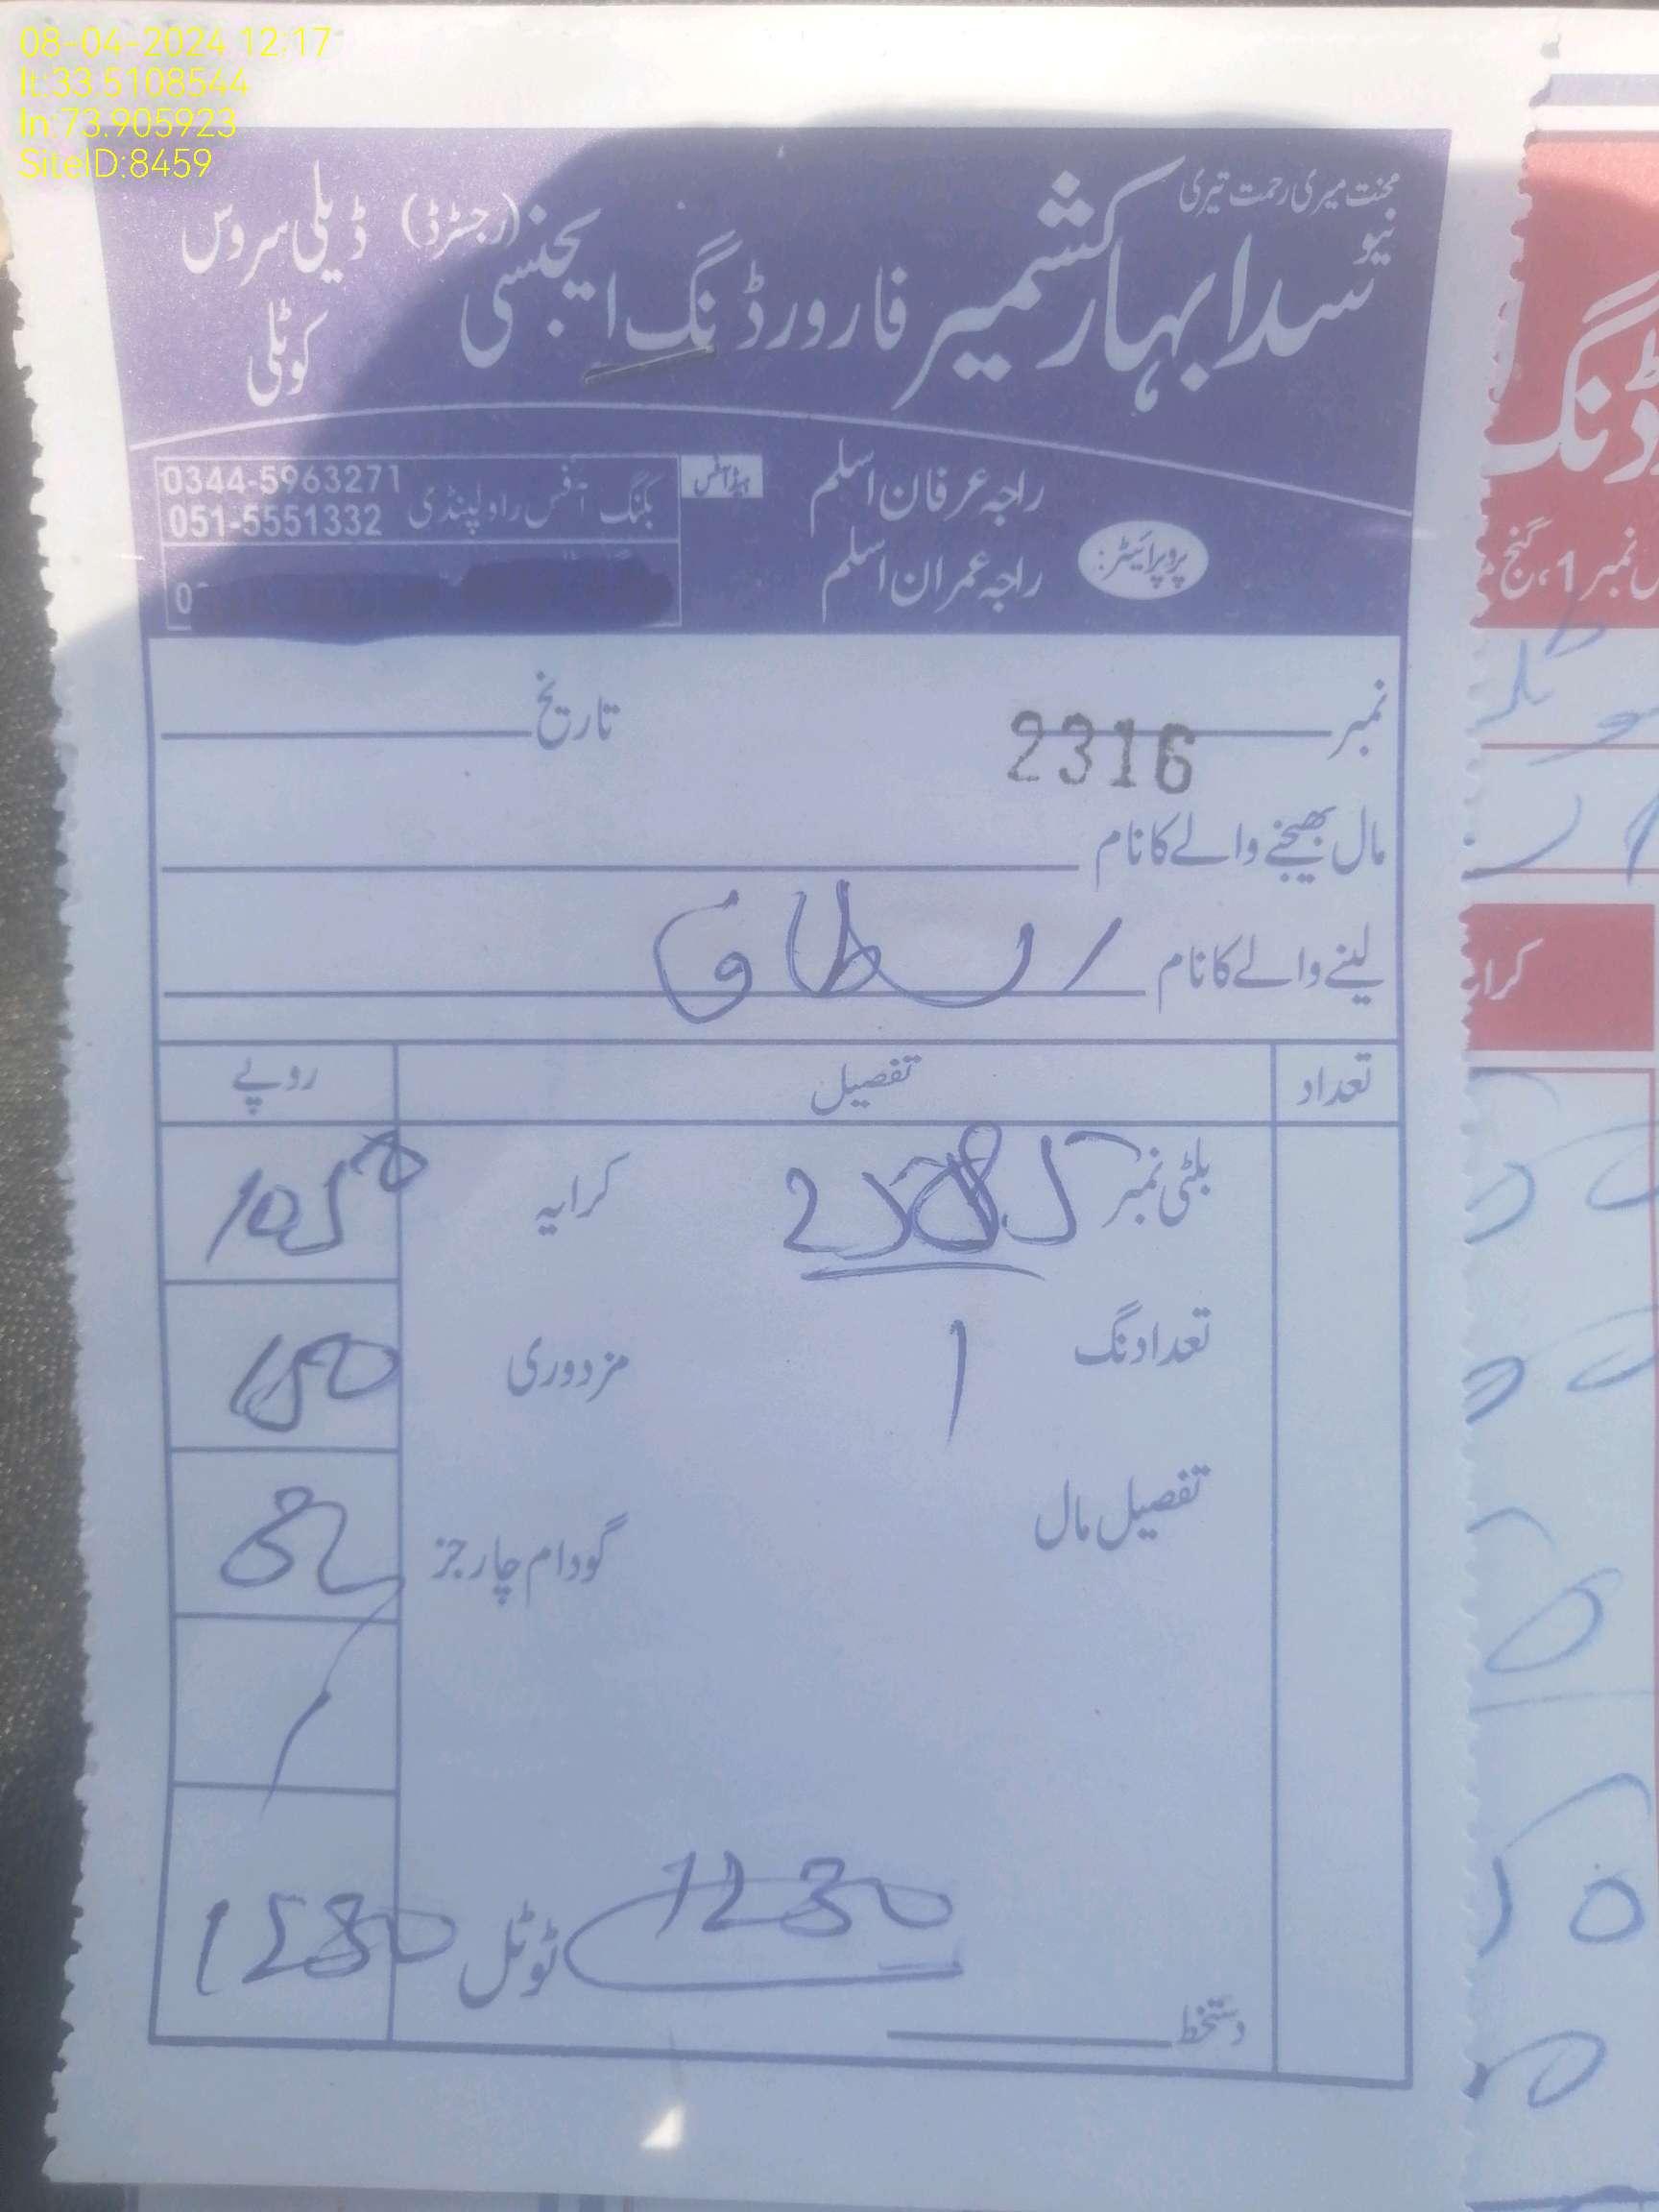 08-04-2024 12:17
lt:33.5108544
ln:73.905923
SiteID:8459
محنت میری رحمت تیری
نیو سدابہار کشمیر فارورڈنگ ایجنسی (رجسٹرڈ) ڈیلی سروس
کوٹلی
پروپرائیٹر: راجہ عرفان اسلم
راجہ عمران اسلم
ہیڈ آفس
بکنگ آفس راولپنڈی 0344-5963271
051-5551332
نمبر 2316 تاریخ
مال بھیجنے والے کا نام
لینے والے کا نام
تعداد تفصیل روپے
بلٹی نمبر کرایہ 1050
تعداد نگ 1 مزدوری 150
تفصیل مال گودام چارجز
1230 ٹوٹل 1230
دستخط
ڈنگ
نمبر 1، گنج
کرا